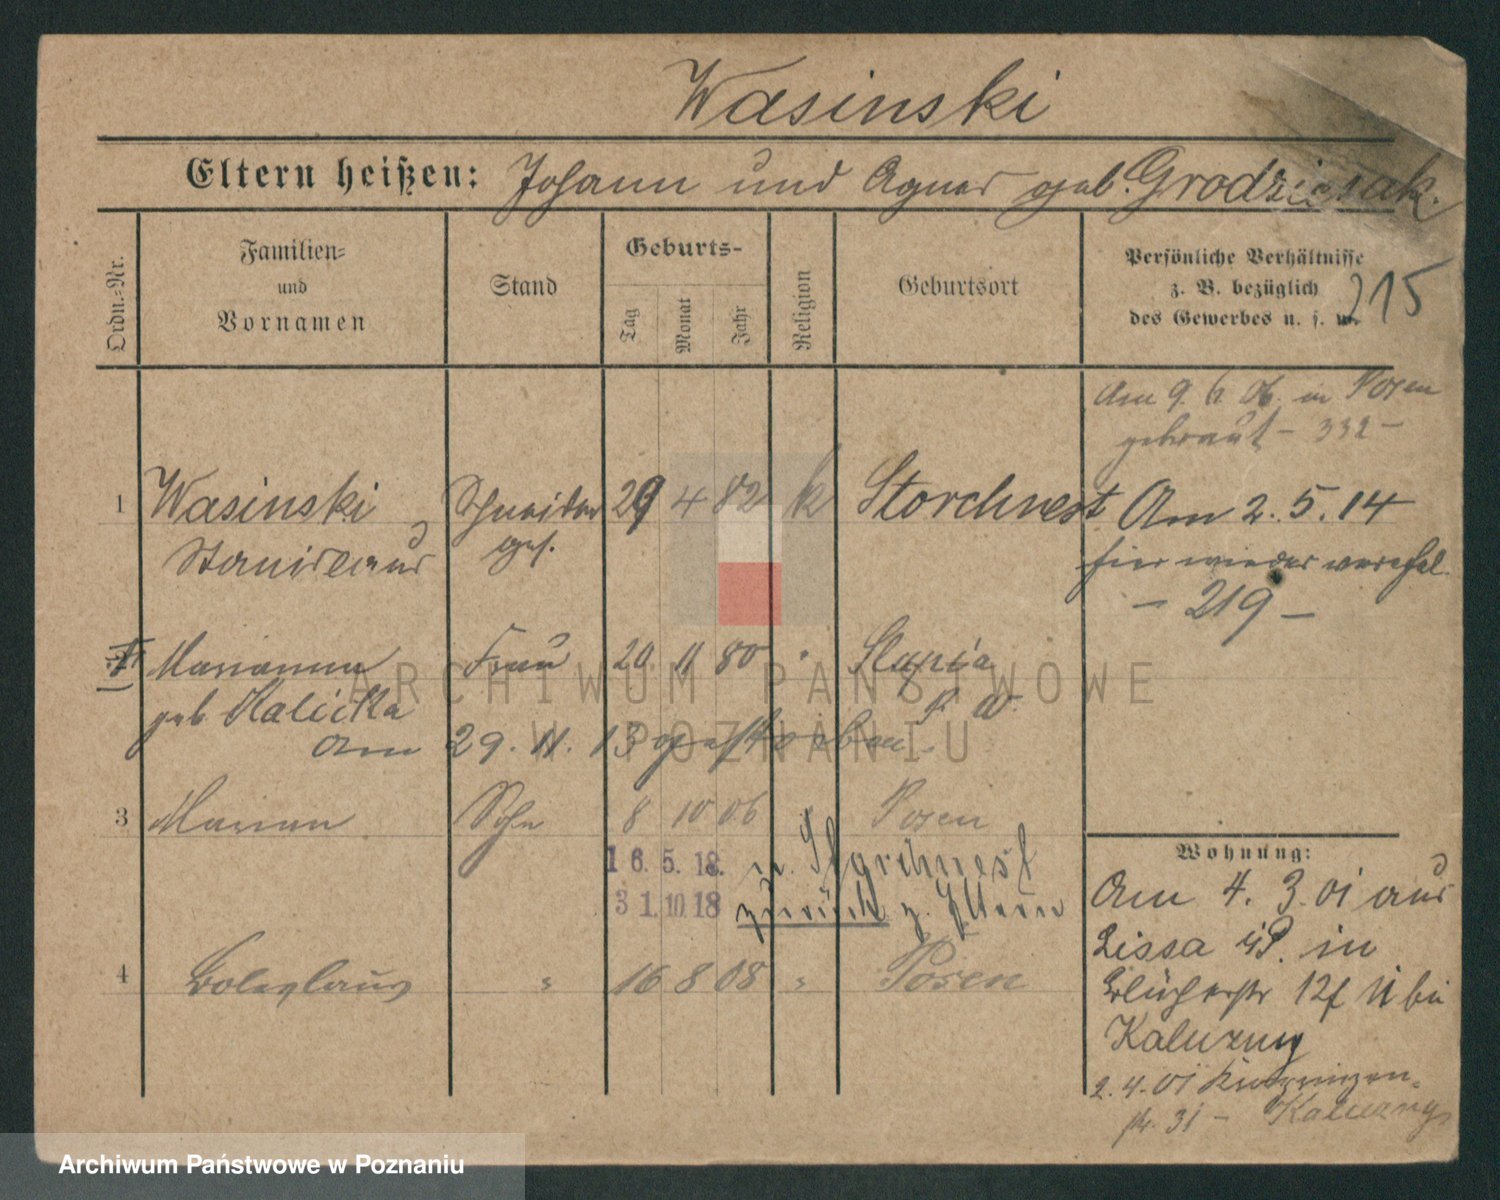 Wasinski
Eltern heißen: Johann und Agnes geb. Grodzisnak.
Ordn.=Nr.
Familien=
und
Vornamen
Stand
Geburts-
Tag
Monat
Jahr
Religion
Geburtsort
Persönliche Verhältnisse
z. B. bezüglich
des Gewerbes u. s. w.
215
Am 9. 6. 06. in Posen
getraut - 332 -
1 Wasinski Schneider 29 4 82 k Storchnest Am 2. 5. 14
Stanislaus ges. hier wieder verehel.
- 219 -
II Marianna Frau 20. 11 80 " Slupia
geb. Halicka P. W.
am 29. 11. 13 gestorben.
3 Marian Sohn 8 10 06 Posen
16. 5. 18. n. Storchnest
31. 10. 18 zurück z. Eltern
4 Boleslaus " 16 8 08 " Posen
Wohnung:
Am 4. 3. 01 aus
Lissa i/P. in
Blücherstr 12f II bei
Kaluzny
2. 4. 01
str. 31 - Kaluzny
ARCHIWUM PAŃSTWOWE
W POZNANIU
Archiwum Państwowe w Poznaniu